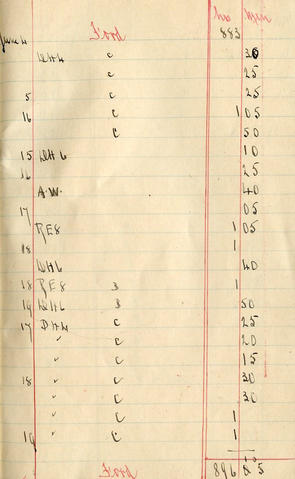 hrs Min
June 4 Ford 883
DH4 C 30
C 25
5 C 25
16 C 1 05
C 50
15 DH6 10
16 25
A.W. 40
17 05
RE8 1 05
18 1
DH6 40
18 RE8 B 1
19 DH6 B 50
17 DH4 C 25
" C 20
" C 15
18 " C 30
" C 30
" C 1
19 " C 1
Ford 896